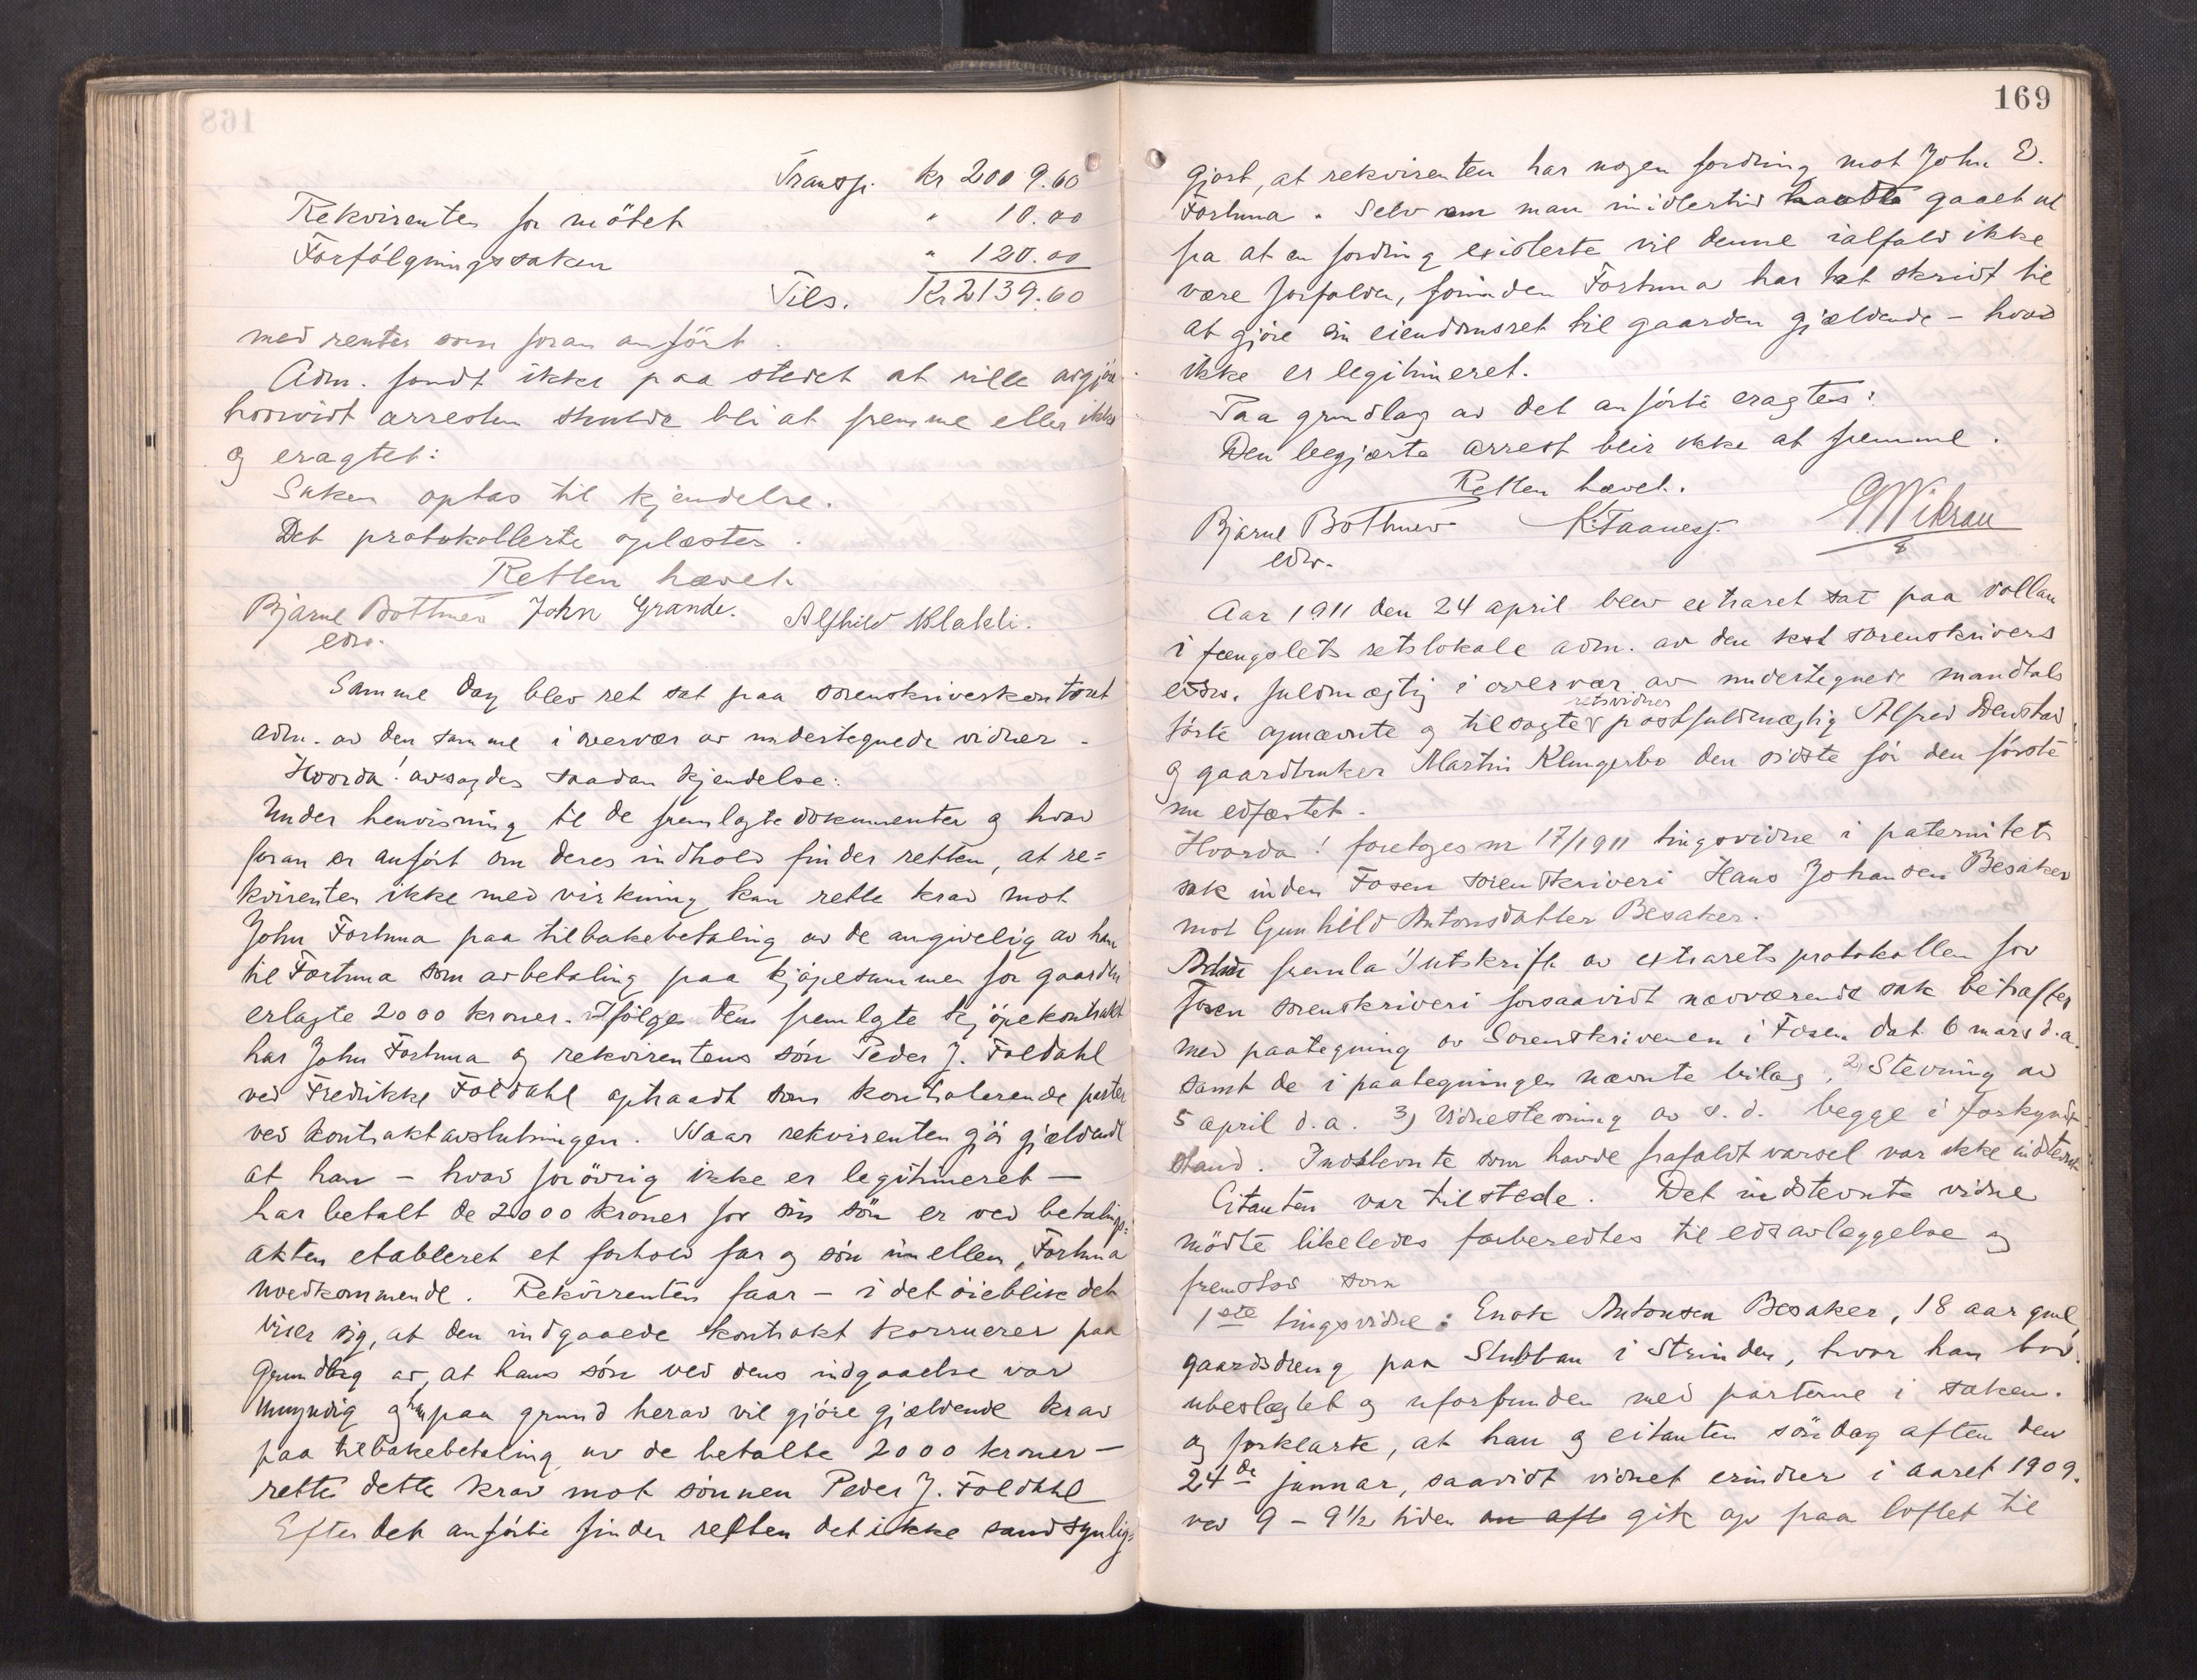 Transp. kr 2009.60
Rekvirenten for mötet " 10.00
Forfölgningssaken " 120.00
Tils. Kr 2139.60
med renter som foran anfört.
Adm. fandt ikke paa stedet at ville avgjöre
hvorvidt arresten skulde bli at fremme eller ikke
og eragtet:
Saken optas til kjendelse.
Det protokollerte oplæstes.
Retten hævet.
Bjarne Bottmer John Grande. Alfhild Klakli.
edsv.
Samme dag blev ret sat paa sorenskriverkontoret
adm. av den samme i overvær av undertegnede vidner.
Hvorda! avsagdes saadan kjendelse:
Under henvisning til de fremlagte dokumenter og hvad
foran er anfört om deres indhold finder retten, at re=
kvirenten ikke med virkning kan rette krav mot
John Fortuna paa tilbakebetaling av de angivelig av ham
til Fortuna som avbetaling paa kjöpesummen for gaarden
erlagte 2000 kroner. Ifölge den fremlagte kjöpekontrakt
har John Fortuna og rekvirentens sön Peder J. Foldahl
ved Fredrikke Foldahl optraadt som kontraherende parter
ved kontraktavslutningen. Naar rekvirenten gjör gjældende
at han – hvad forövrig ikke er legitimeret –
har betalt de 2000 kroner for sin sön er ved betalings=
akten etableret et forhold far og sön imellem, Fortuna
uvedkommende. Rekvirenten faar – i det öieblik det
viser sig, at den indgaaede kontrakt korruerer paa
grundlag av, at hans sön ved dens indgaaelse var
umyndig og han paa grund herav vil gjöre gjældende krav
paa tilbakebetaling av de betalte 2000 kroner –
rette dette krav mot sönnen Peder J. Foldahl
Efter det anförte finder retten det ikke sandsynlig=
169
gjort, at rekvirenten har nogen fordring mot John E.
Fortuna. Selv om man imidlertid havde gaaet ut
fra at en fordring existerte vil denne ialfald ikke
være forfalden, forinden Fortuna har tat skridt til
at gjöre sin eiendomsret til gaarden gjældende – hvad
ikke er legitimeret.
Paa grundlag av det anförte eragtes:
Den begjærte arrest blir ikke at fremme.
Retten hævet.
Bjarne Bottmer K. Taanes
edsv.
Aar 1911 den 24 april blev extraret sat paa Vollan
i fængslets retslokale adm. av den kst sorenskrivers
edsv. fuldmægtig i overvær av undertegnede mandtals
förte opnævnte og tilsagte retsvidner postfuldmægtig Alfred Denstad
og gaardbruker Martin Klungerbo den sidste för den förste
nu edfæstet.
Hvorda! foretoges nr 17/1911 tingsvidne i paternitets
sak inden Fosen sorenskriveri Hans Johansen Besaker
mot Gunhild Antonsdatter Besaker.
Adm fremla 1) utskrift av extraretsprotokollen for
Fosen sorenskriveri forsaavidt nærværende sak betræffer
med paategning av Sorenskriveren i Fosen dat. 6 mars d.a.
samt de i paategningen nævnte bilag, 2) Stevning av
5 april d.a. 3) Vidnestevning av s.d. begge i forkyndt
stand. Indstevnte som havde frafaldt varsel var ikke indstevnt
Citanten var tilstede. Det indstevnte vidne
mödte likeledes forberedtes til edsavlæggelse og
fremstod som
1ste tingsvidne: Enok Antonsen Besaker, 18 aar gml,
gaardsdreng paa Stubban i Strinden, hvor han bor.
ubeslægtet og uforbunden med parterne i saken.
og forklarte, at han og citanten söndag aften den
24de januar, saavidt vidnet erindrer i aaret 1909.
ved 9 – 9½ tiden gik op paa loftet til